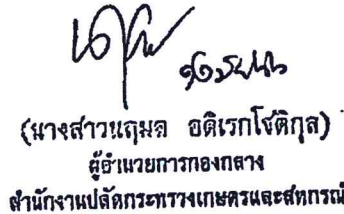 (นางสาวนฤมล อดิเรกโชติกุล)
ผู้อำนวยการกองกลาง
สำนักงานปลัดกระทรวงเกษตรและสหกรณ์